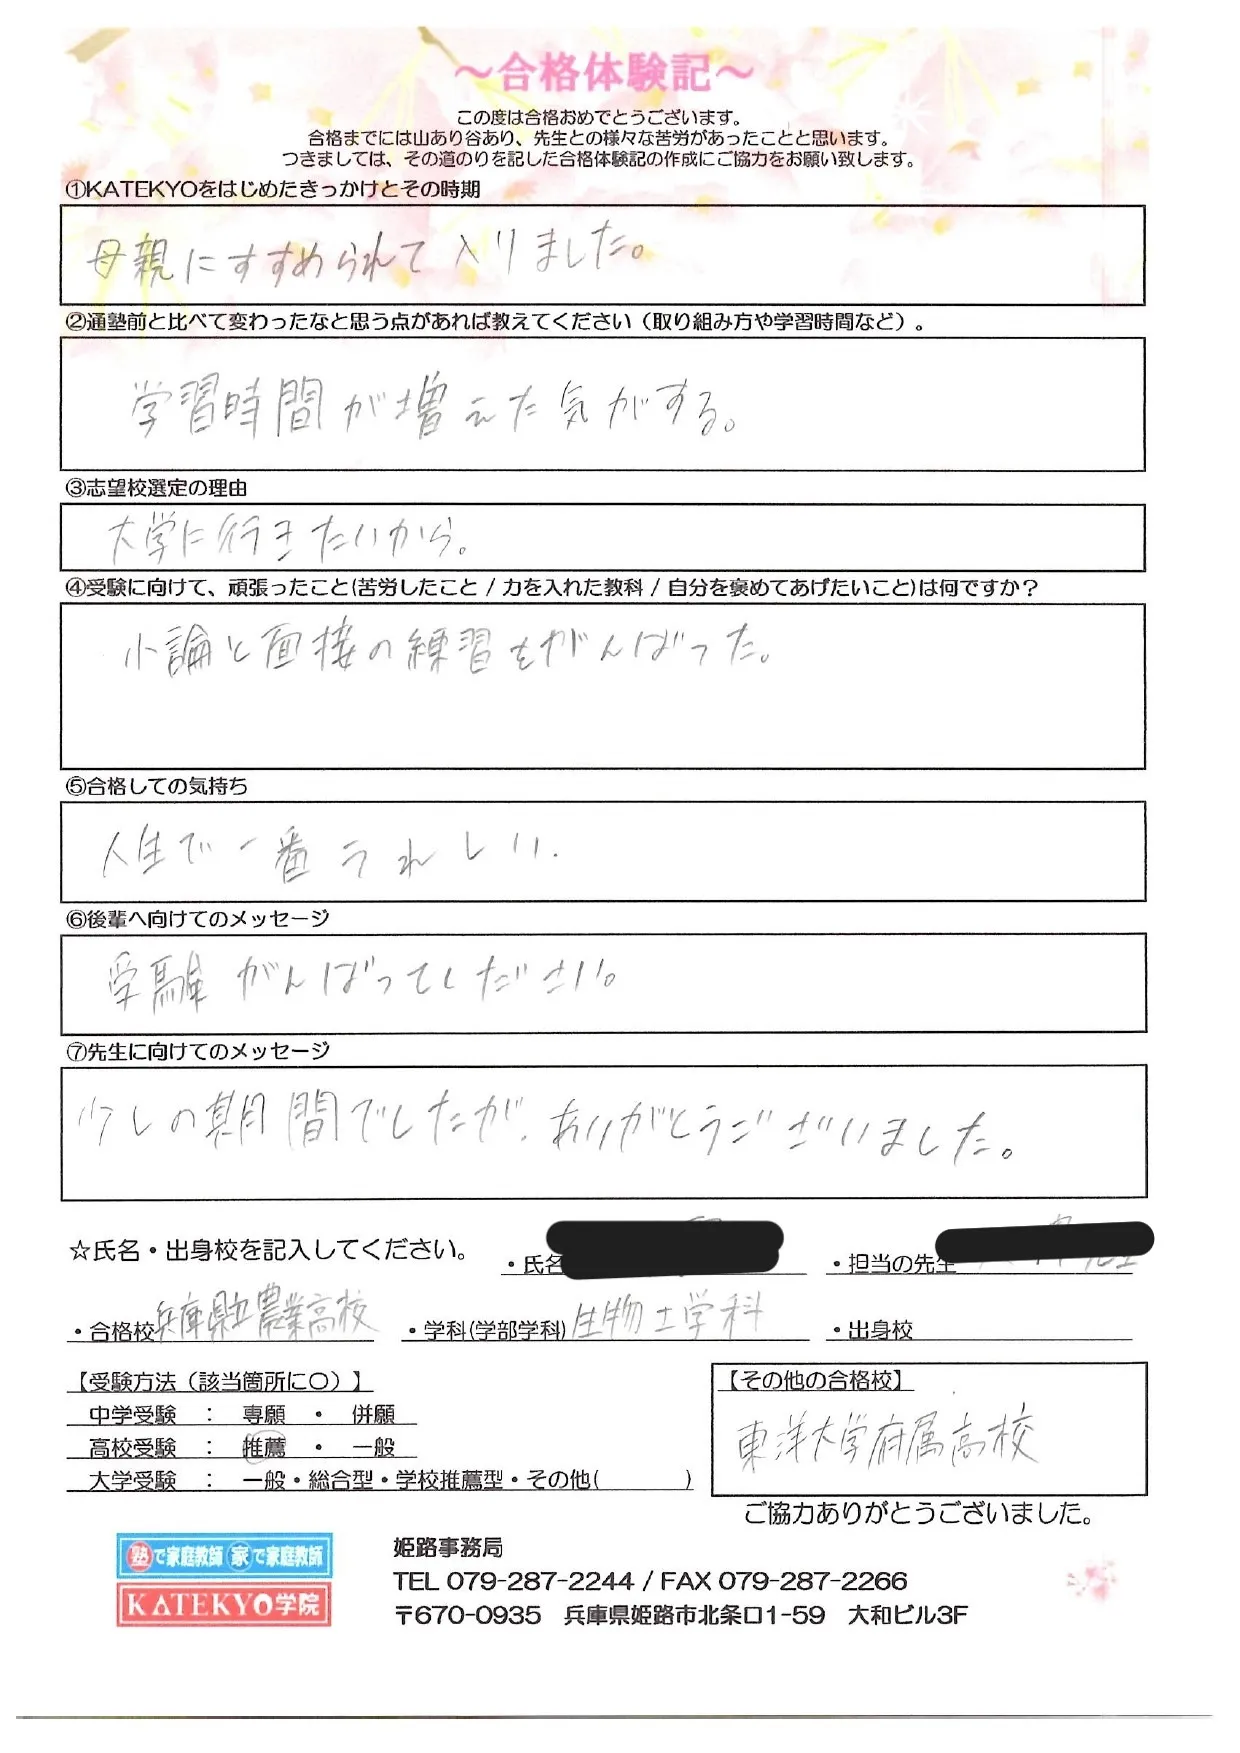 ～合格体験記～
この度は合格おめでとうございます。
合格までには山あり谷あり、先生との様々な苦労があったことと思います。
つきましては、その道のりを記した合格体験記の作成にご協力をお願い致します。
①KATEKYOをはじめたきっかけとその時期
母親にすすめられて入りました。
②通塾前と比べて変わったなと思う点があれば教えてください（取り組み方や学習時間など）。
学習時間が増えた気がする。
③志望校選定の理由
大学に行きたいから。
④受験に向けて、頑張ったこと(苦労したこと / 力を入れた教科 / 自分を褒めてあげたいこと)は何ですか？
小論と面接の練習をがんばった。
⑤合格しての気持ち
人生で一番うれしい.
⑥後輩へ向けてのメッセージ
受験がんばってください。
⑦先生に向けてのメッセージ
少しの期間でしたが、ありがとうございました。
☆氏名・出身校を記入してください。 ・氏名 ・担当の先生
・合格校 兵庫県立農業高校 ・学科(学部学科) 生物工学科 ・出身校
【受験方法（該当箇所に〇）】
中学受験 ： 専願 ・ 併願
高校受験 ： 推薦 ・ 一般
大学受験 ： 一般・総合型・学校推薦型・その他( )
【その他の合格校】
東洋大学府属高校
ご協力ありがとうございました。
塾で家庭教師 家で家庭教師
KATEKYO学院
姫路事務局
TEL 079-287-2244 / FAX 079-287-2266
〒670-0935 兵庫県姫路市北条口1-59 大和ビル3F